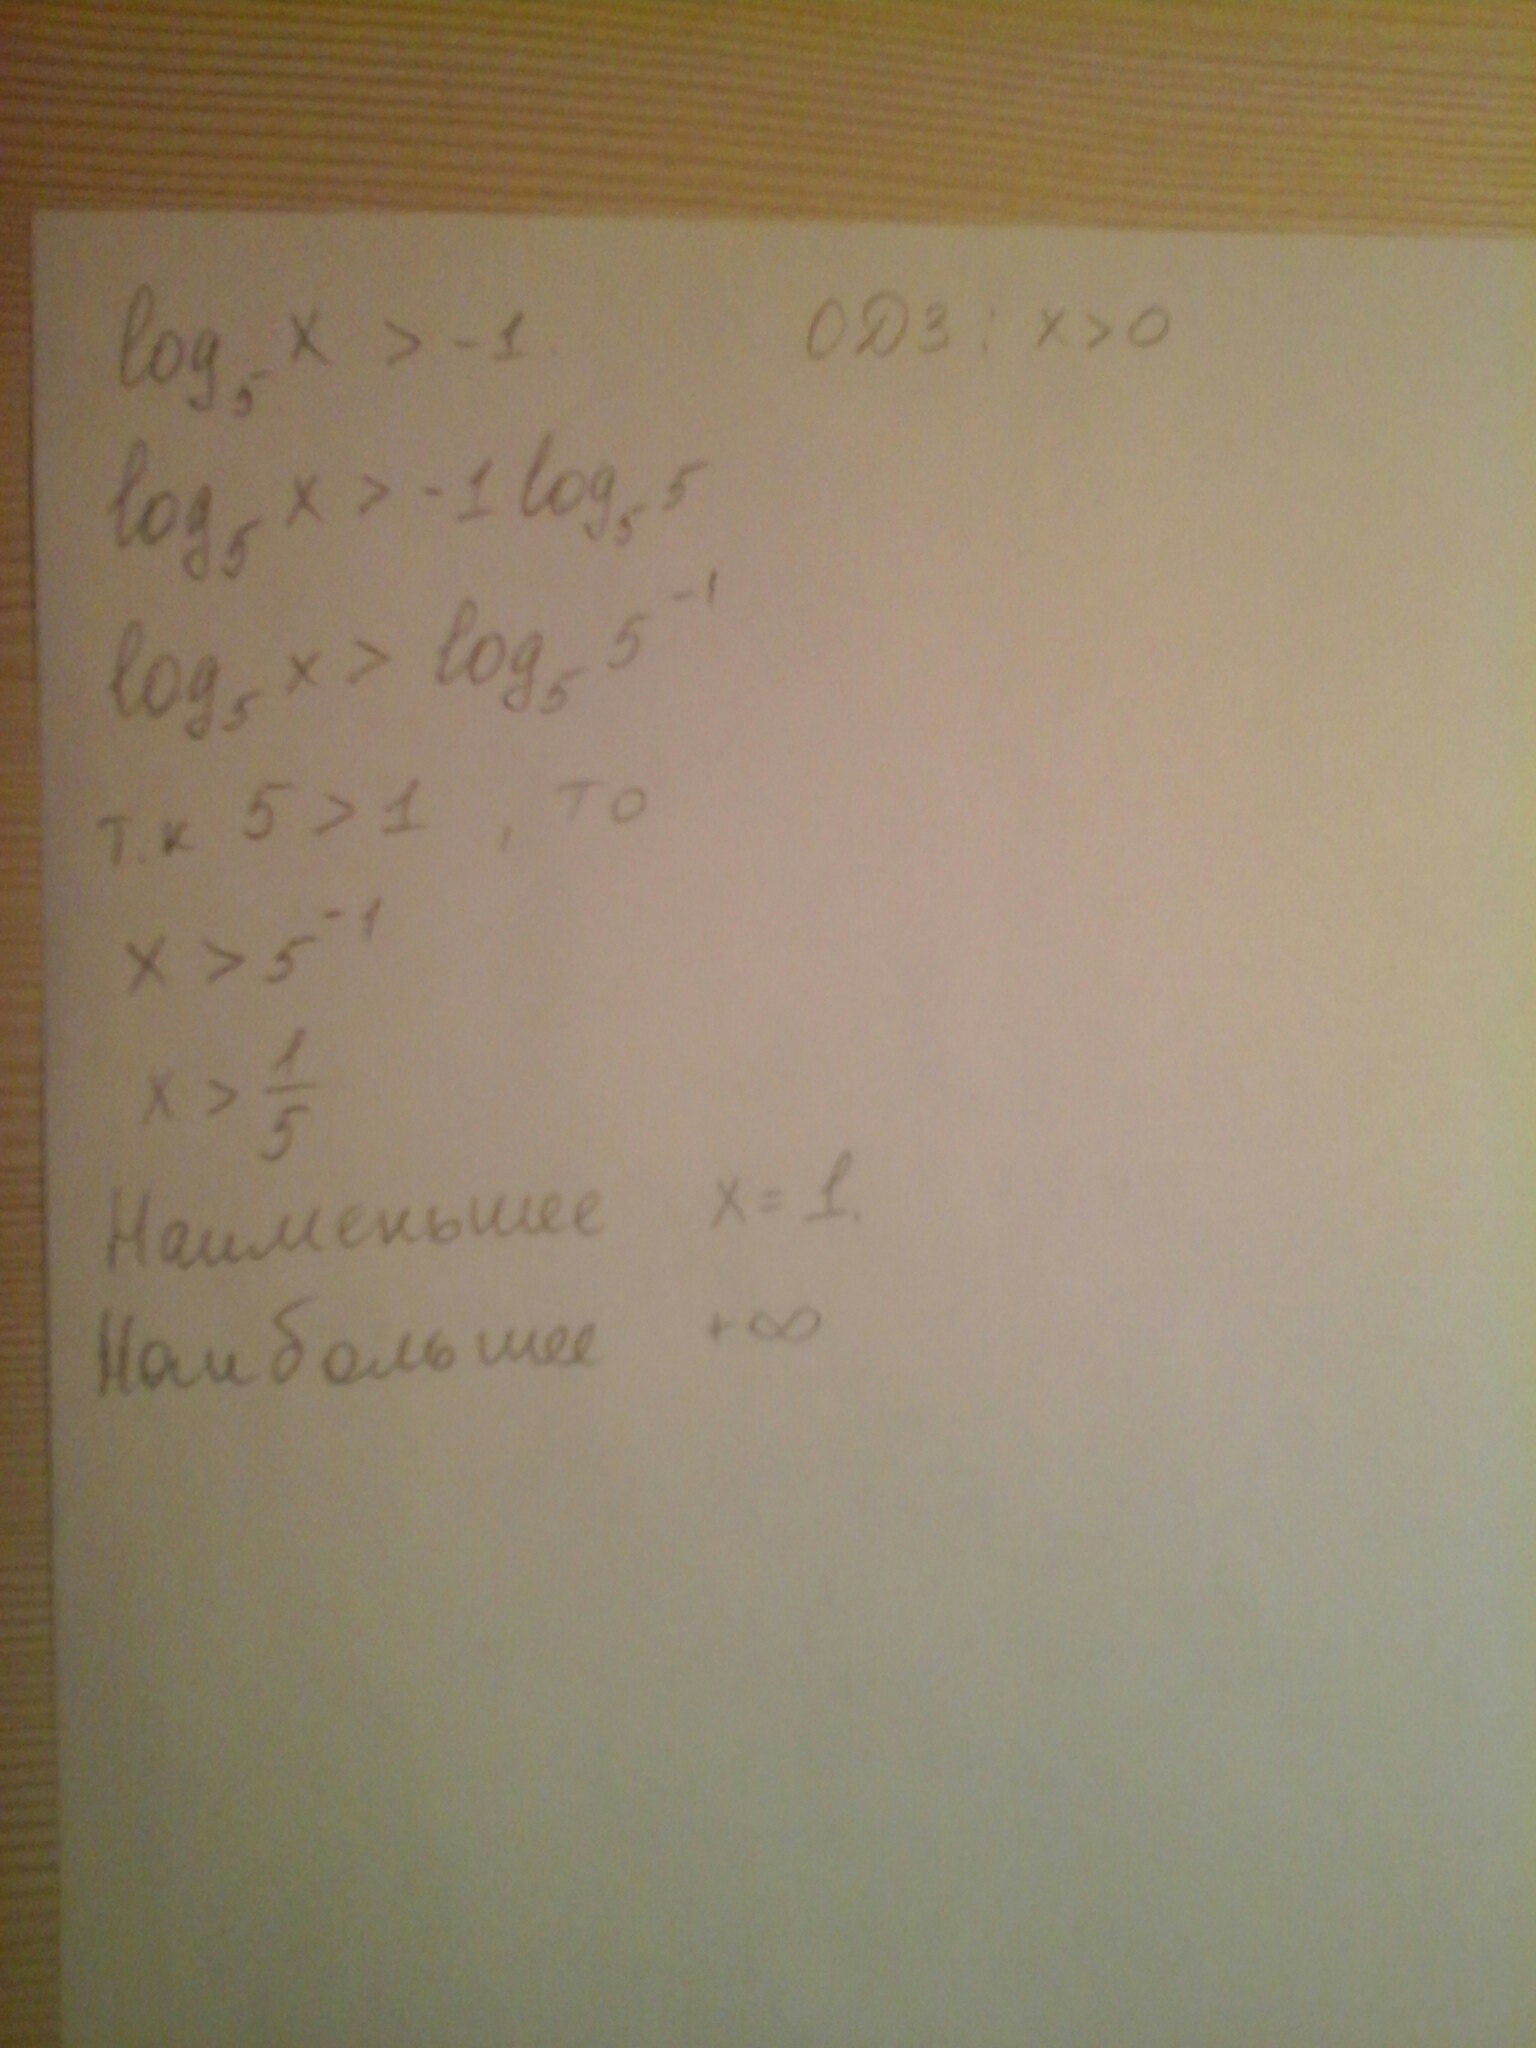 log₅ x > -1 ОДЗ: x>0
log₅ x > -1 log₅ 5
log₅ x > log₅ 5⁻¹
т.к 5 > 1 , то
x > 5⁻¹
x > 1/5
Наименьшее x = 1.
Наибольшее +∞